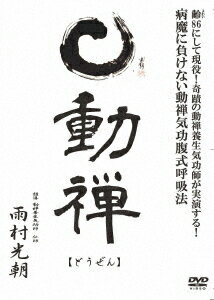 齢86にして現役！奇蹟の動禅養生気功師が実演する！
病魔に負けない動禅気功腹式呼吸法
動禅
【どうぜん】
雨村光朝
DVD
VIDEO